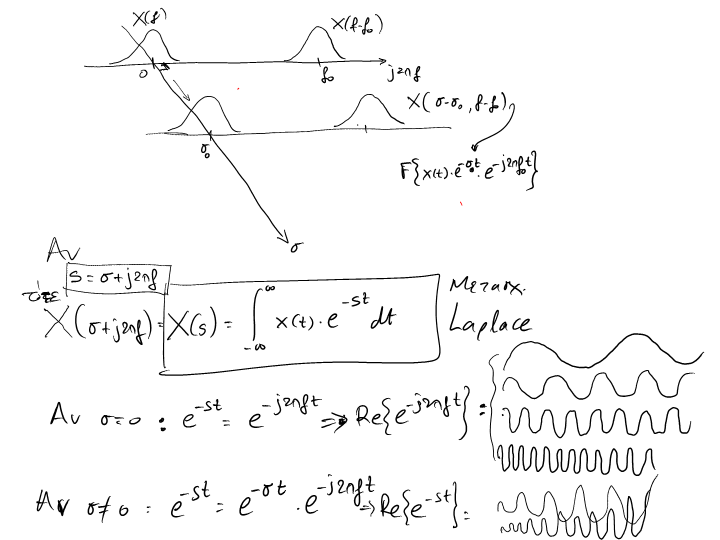 X(f)
X(f-f₀)
0
f₀
j2πf
X(σ-σ₀, f-f₀)
σ₀
F{x(t)·e^{-σ₀t}·e^{-j2πf₀t}}
σ
Αν
s = σ+j2πf
τότε
X(σ+j2πf) = X(s) = ∫_{-∞}^{∞} x(t)·e^{-st} dt
Μετασχ.
Laplace
Αν σ=0 : e^{-st} = e^{-j2πft} ⇒ Re{e^{-j2πft}} =
Αν σ≠0 : e^{-st} = e^{-σt} · e^{-j2πft} ⇒ Re{e^{-st}} =